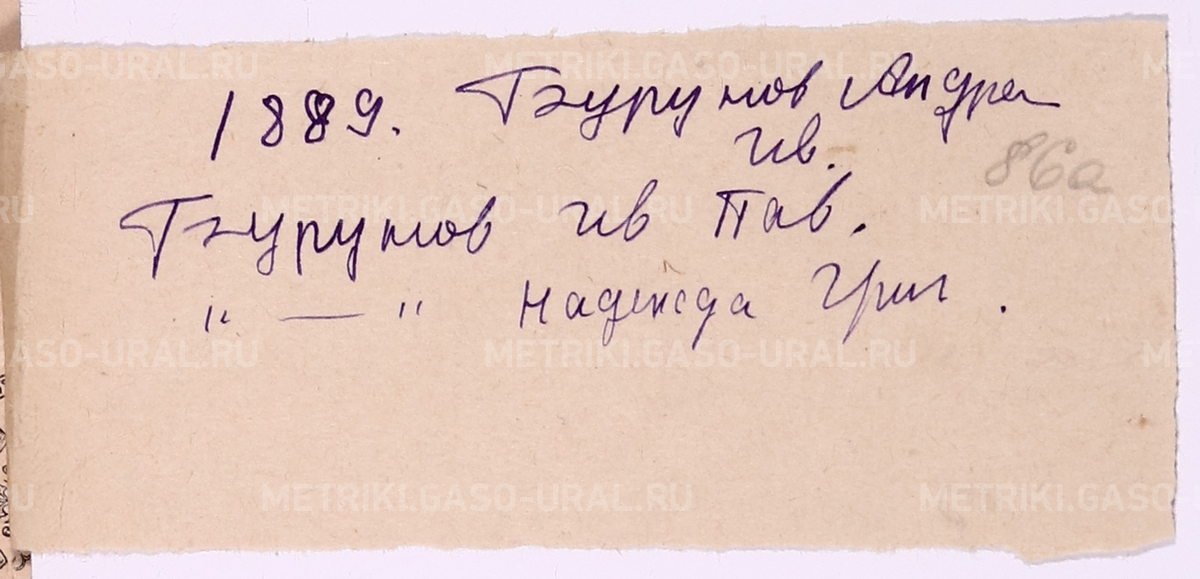 1889. Тзурумов Андре
ив.
86а
Тзурумов ив Пав.
" — " Надежда Григ.
METRIKI.GASO-URAL.RU